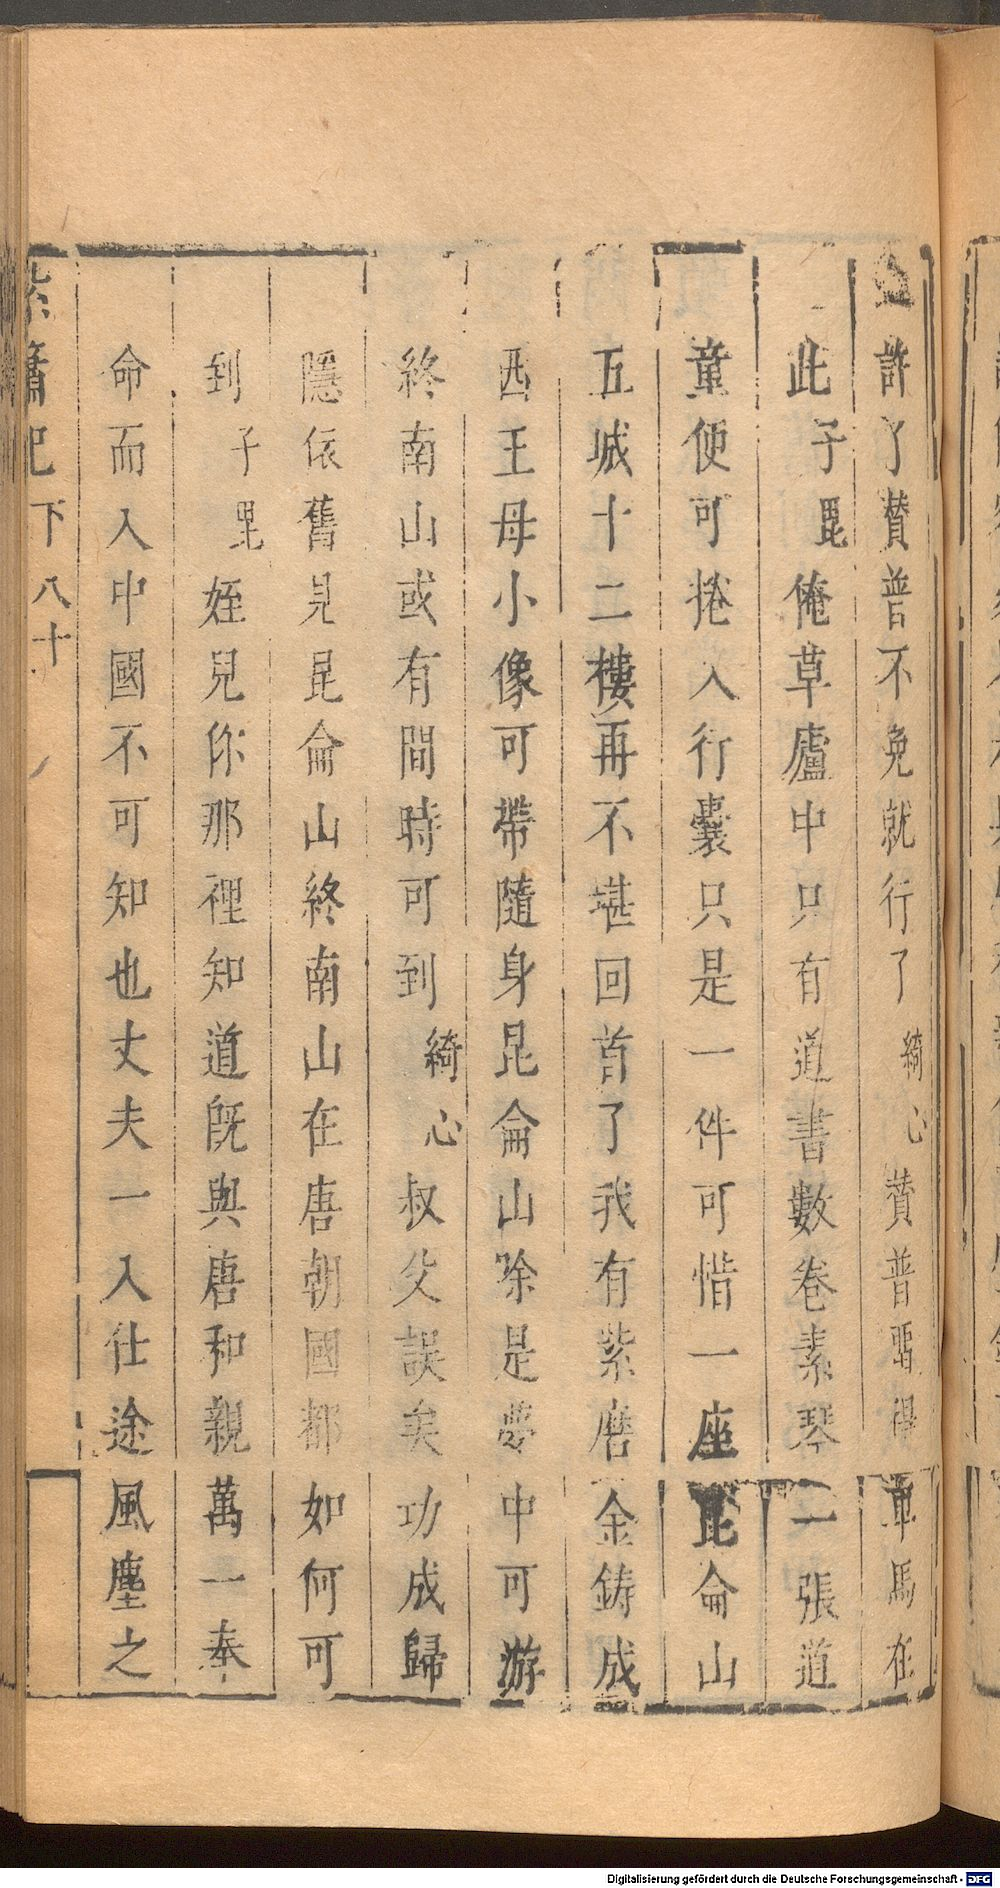 許了贊普不免就行了綺心贊普要得車馬在
此子毘俺草廬中只有道書數卷素琴一張道
童便可捲入行囊只是一件可惜一座昆侖山
五城十二樓再不堪回首了我有紫磨金鋳成
西王母小像可帶隨身昆侖山除是夢中可游
終南山或有間時可到綺心叔父誤矣功成歸
隱依舊見昆侖山終南山在唐朝國都如何可
到子毘姪兒你那裡知道既與唐和親萬一奉
命而入中國不可知也丈夫一入仕途風塵之
紫簫記下八十
Digitalisierung gefördert durch die Deutsche Forschungsgemeinschaft - DFG